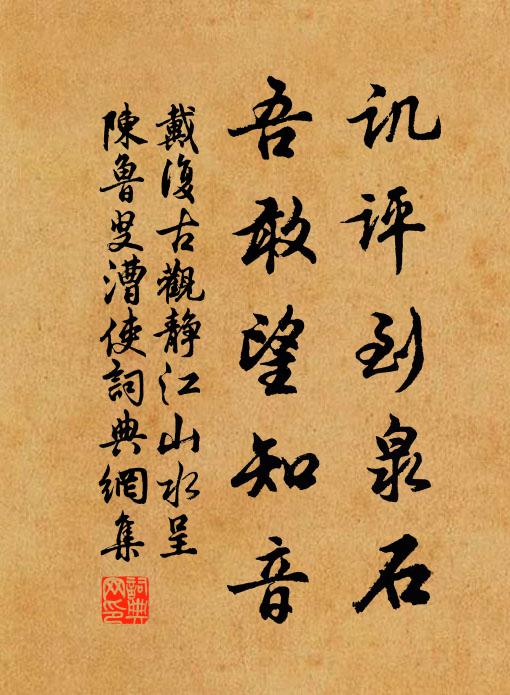 讥评到泉石
吾敢望知音
戴復古觀静江山水呈
陳魯叟漕使詞典網集
詞典
网印